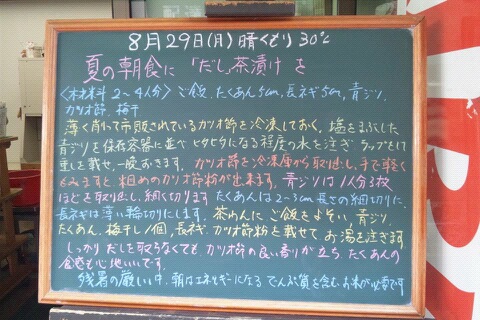 8月29日(月) 晴くもり 30℃
夏の朝食に 「だし茶漬け」を
〈材料 2〜4人分〉 ご飯、たくあん5cm、長ネギ5cm、青ジソ、
カツオ節、梅干
薄く削って市販されているカツオ節を冷凍しておく。塩をまぶした
青ジソを保存容器に並べ ヒタヒタになる程度の水を注ぎ ラップをして
重しを載せ、一晩おきます。カツオ節を冷凍庫から取り出し、手で軽く
もみますと 粗めのカツオ節粉が出来ます。青ジソは1人分3枚
ほどを取り出し、細く切ります たくあんは2〜3cm長さの細切りに、
長ネギは薄い輪切りにします。茶わんに ご飯をよそい、青ジソ、
たくあん、梅干し1個、長ネギ、カツオ節粉を載せて お湯を注ぎます。
しっかり だしを取らなくても カツオ節の良い香りが立ち たくあんの
食感も心地いいです。
残暑の厳しい中、朝はエネルギーになる でんぷん質を含む お米が必要です